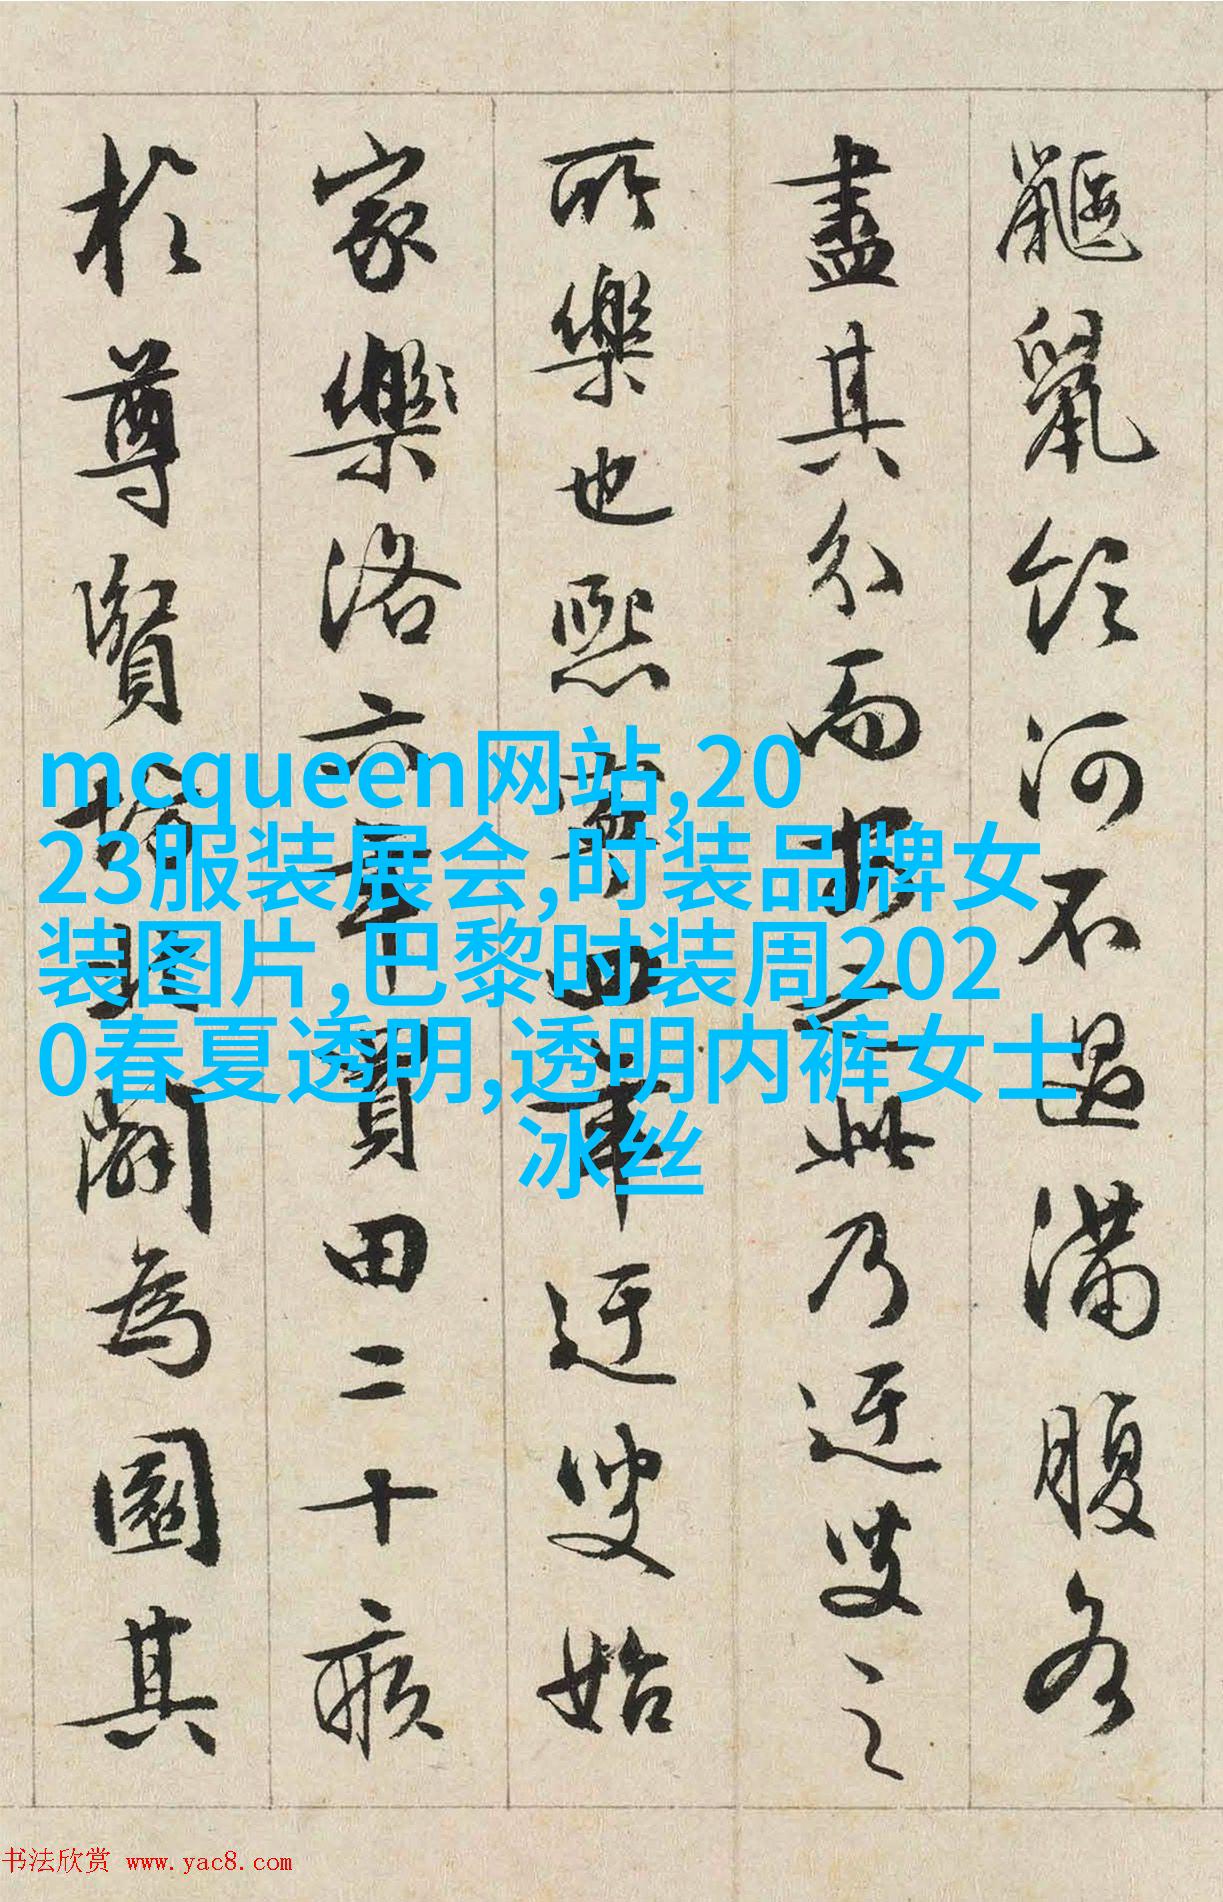 鼴鼠飲河不過滿腹各
盡其分而安之此乃迂叟之
所樂也熙寧四年迂叟始
家樂洛六年買田二十畝
於尊賢坊北闢為園其
mcqueen网站,20
23服装展会,时装品牌女
装图片,巴黎时装周202
0春夏透明,透明内裤女士
冰丝
书法欣赏 www.yac8.com